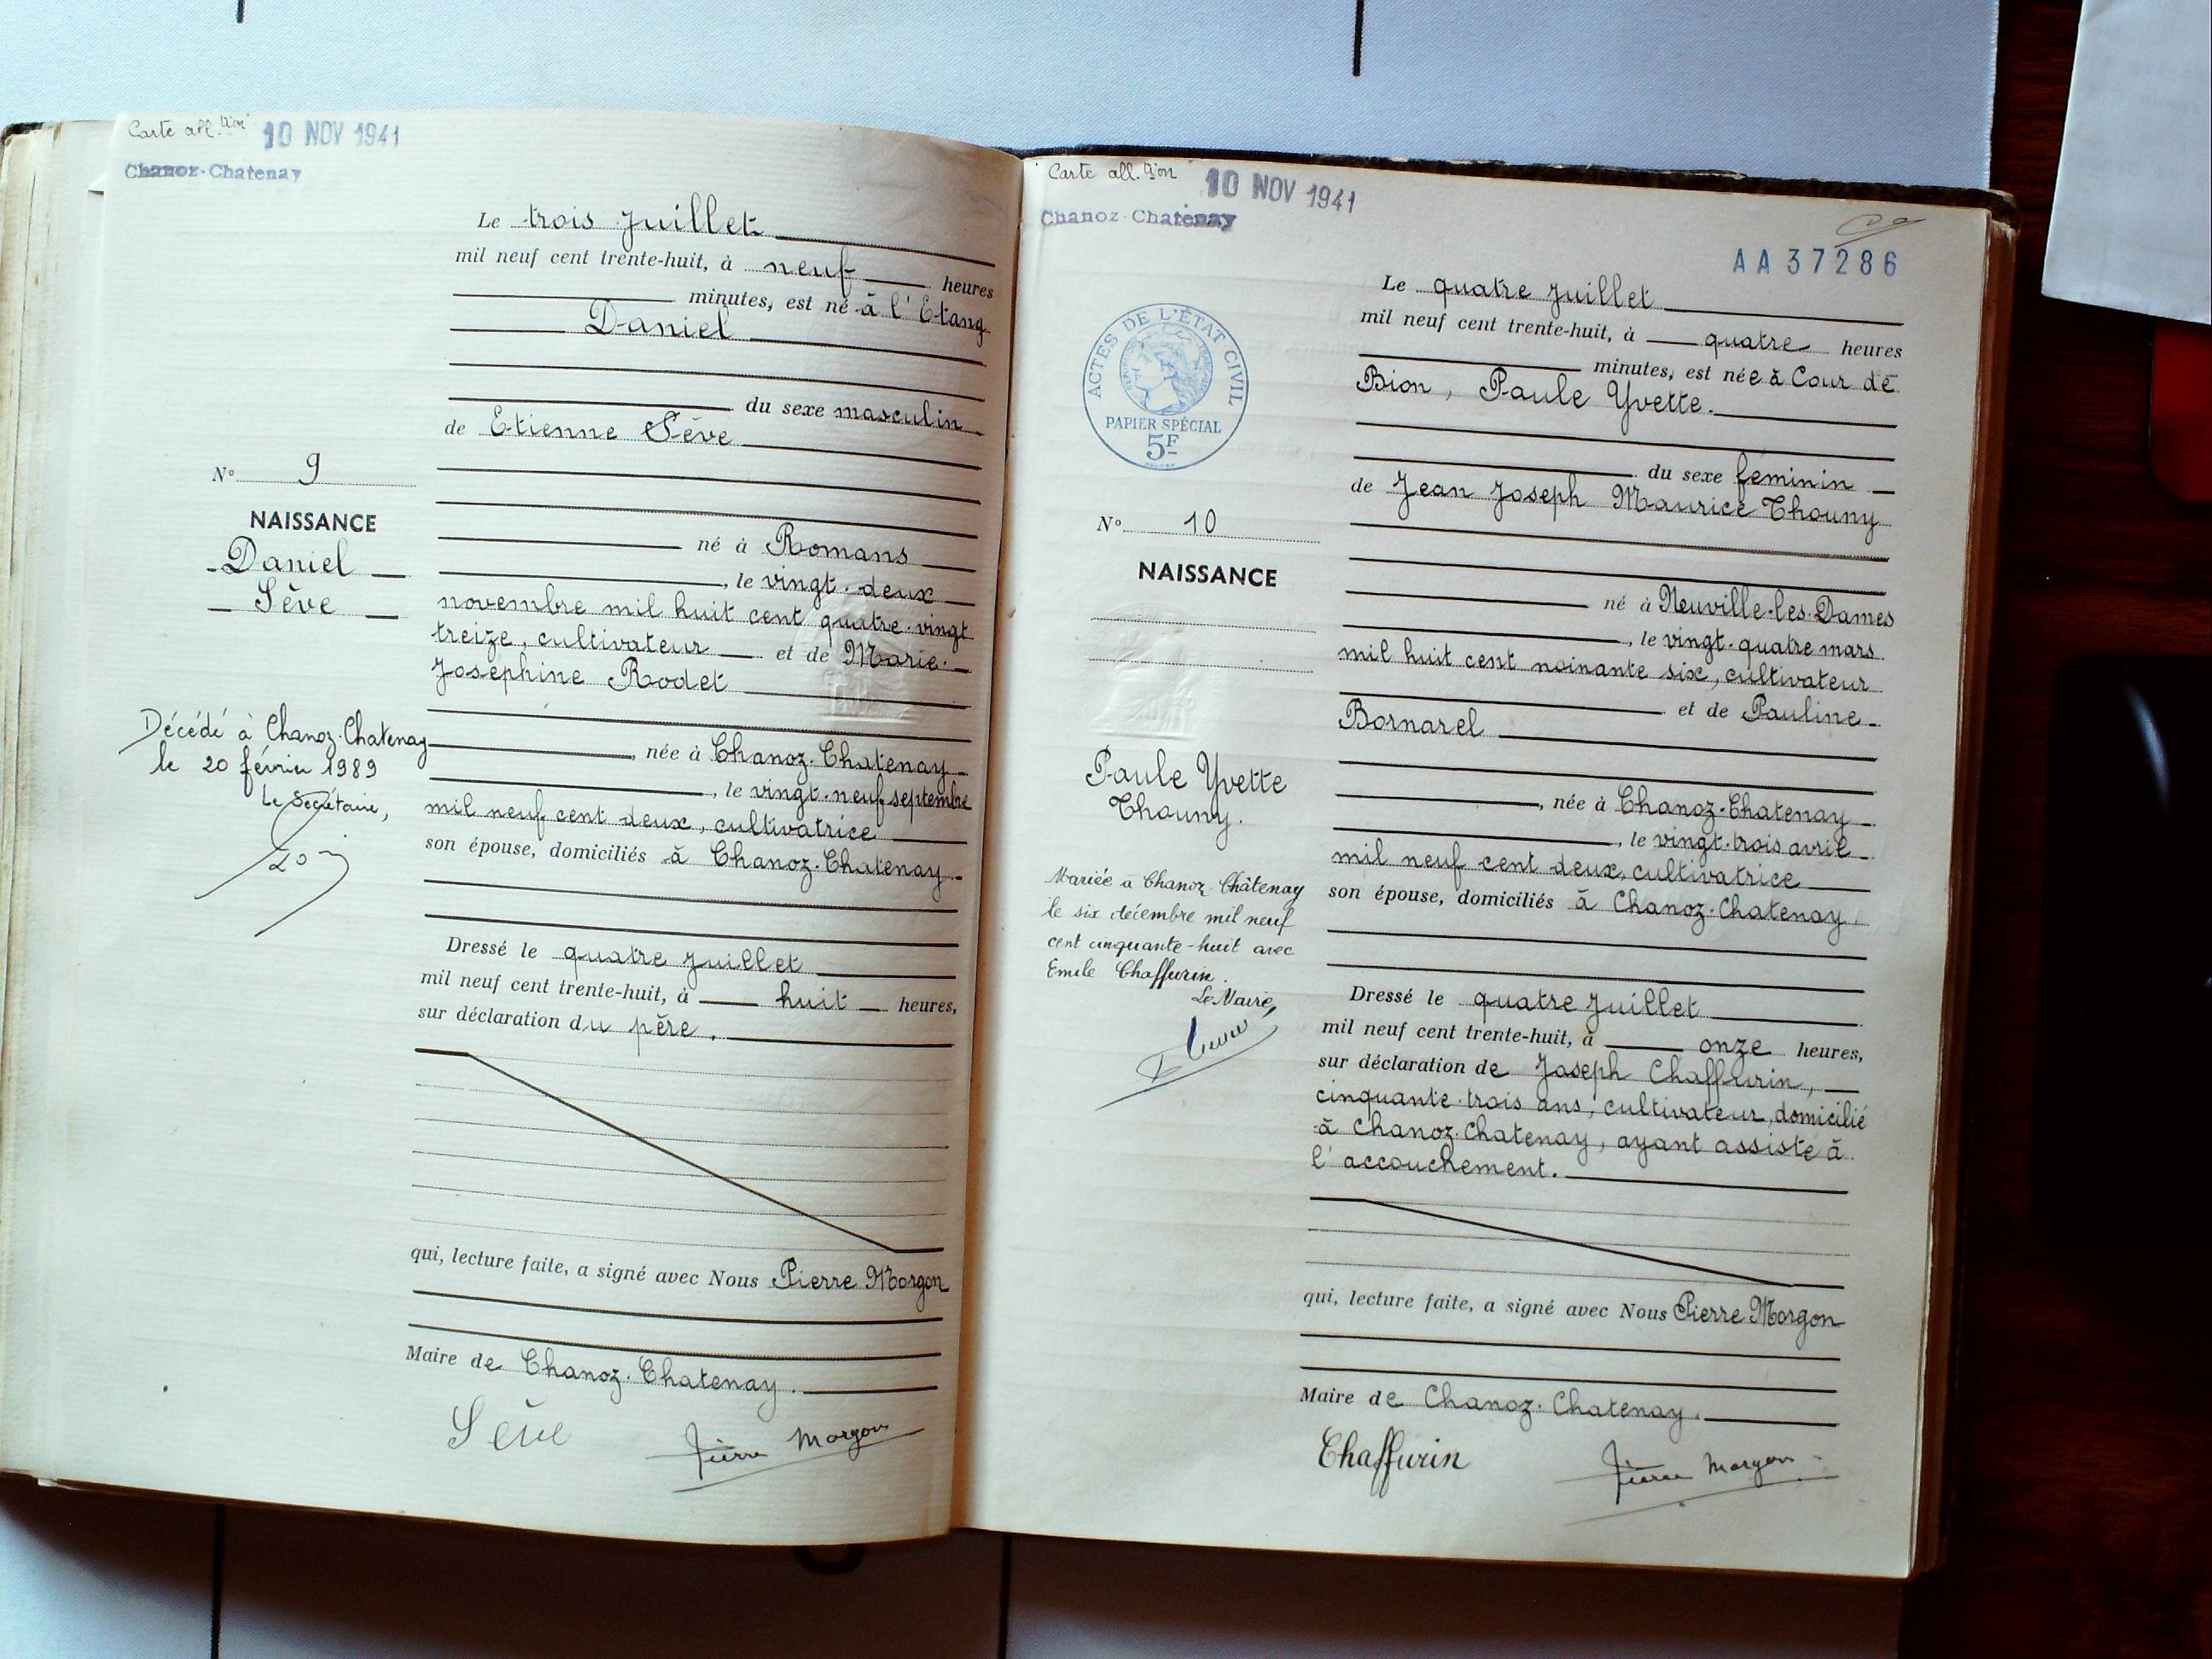 Carte all. 10 NOV 1941
Chanoz-Chatenay
Le trois juillet
mil neuf cent trente-huit, à neuf heures
minutes, est né à l'Etang
Daniel
du sexe masculin
de Etienne Sève
N° 9
NAISSANCE
Daniel
Sève
né à Romans
, le vingt-deux
novembre mil huit cent quatre-vingt
treize, cultivateur et de Marie-
Josephine Rodet
Décédé à Chanoz-Chatenay
le 20 février 1989
Le Secrétaire,
, née à Chanoz-Chatenay
, le vingt-neuf septembre
mil neuf cent deux, cultivatrice
son épouse, domiciliés à Chanoz-Chatenay.
Dressé le quatre juillet
mil neuf cent trente-huit, à huit heures,
sur déclaration du père.
qui, lecture faite, a signé avec Nous Pierre Morgon
Maire de Chanoz-Chatenay.
Sève Pierre Morgon
Carte all. 10 NOV 1941
Chanoz-Chatenay
AA37286
Le quatre juillet
mil neuf cent trente-huit, à quatre heures
minutes, est née à Cour de
Bion, Paule Yvette.
ACTES DE L'ÉTAT CIVIL
PAPIER SPÉCIAL
5F
du sexe féminin
de Jean Joseph Maurice Thouny
N° 10
NAISSANCE
né à Neuville-les-Dames
, le vingt-quatre mars
mil huit cent noinante six, cultivateur
et de Pauline
Bornarel
Paule Yvette
Thouny.
, née à Chanoz-Chatenay
, le vingt-trois avril
mil neuf cent deux, cultivatrice
son épouse, domiciliés à Chanoz-Chatenay.
Mariée à Chanoz-Châtenay
le six décembre mil neuf
cent cinquante-huit avec
Emile Chaffurin.
Le Maire,
Dressé le quatre juillet
mil neuf cent trente-huit, à onze heures,
sur déclaration de Joseph Chaffurin,
cinquante-trois ans, cultivateur, domicilié
à Chanoz-Chatenay, ayant assisté à
l'accouchement.
qui, lecture faite, a signé avec Nous Pierre Morgon
Maire de Chanoz-Chatenay.
Chaffurin Pierre Morgon